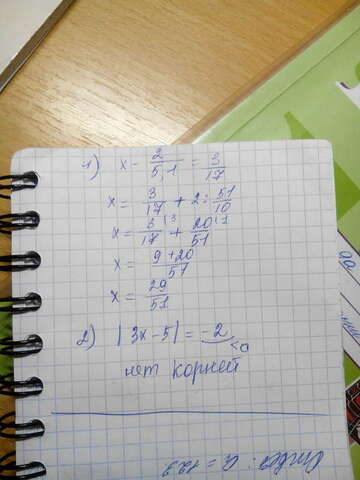 1) x - 2/5,1 = 3/17
x = 3/17 + 2 : 51/10
x = 3/17 |3 + 20/51 |1
x = 9+20/51
x = 29/51
2) |3x-5| = -2 <0
нет корней
Ответ: a = 12.3